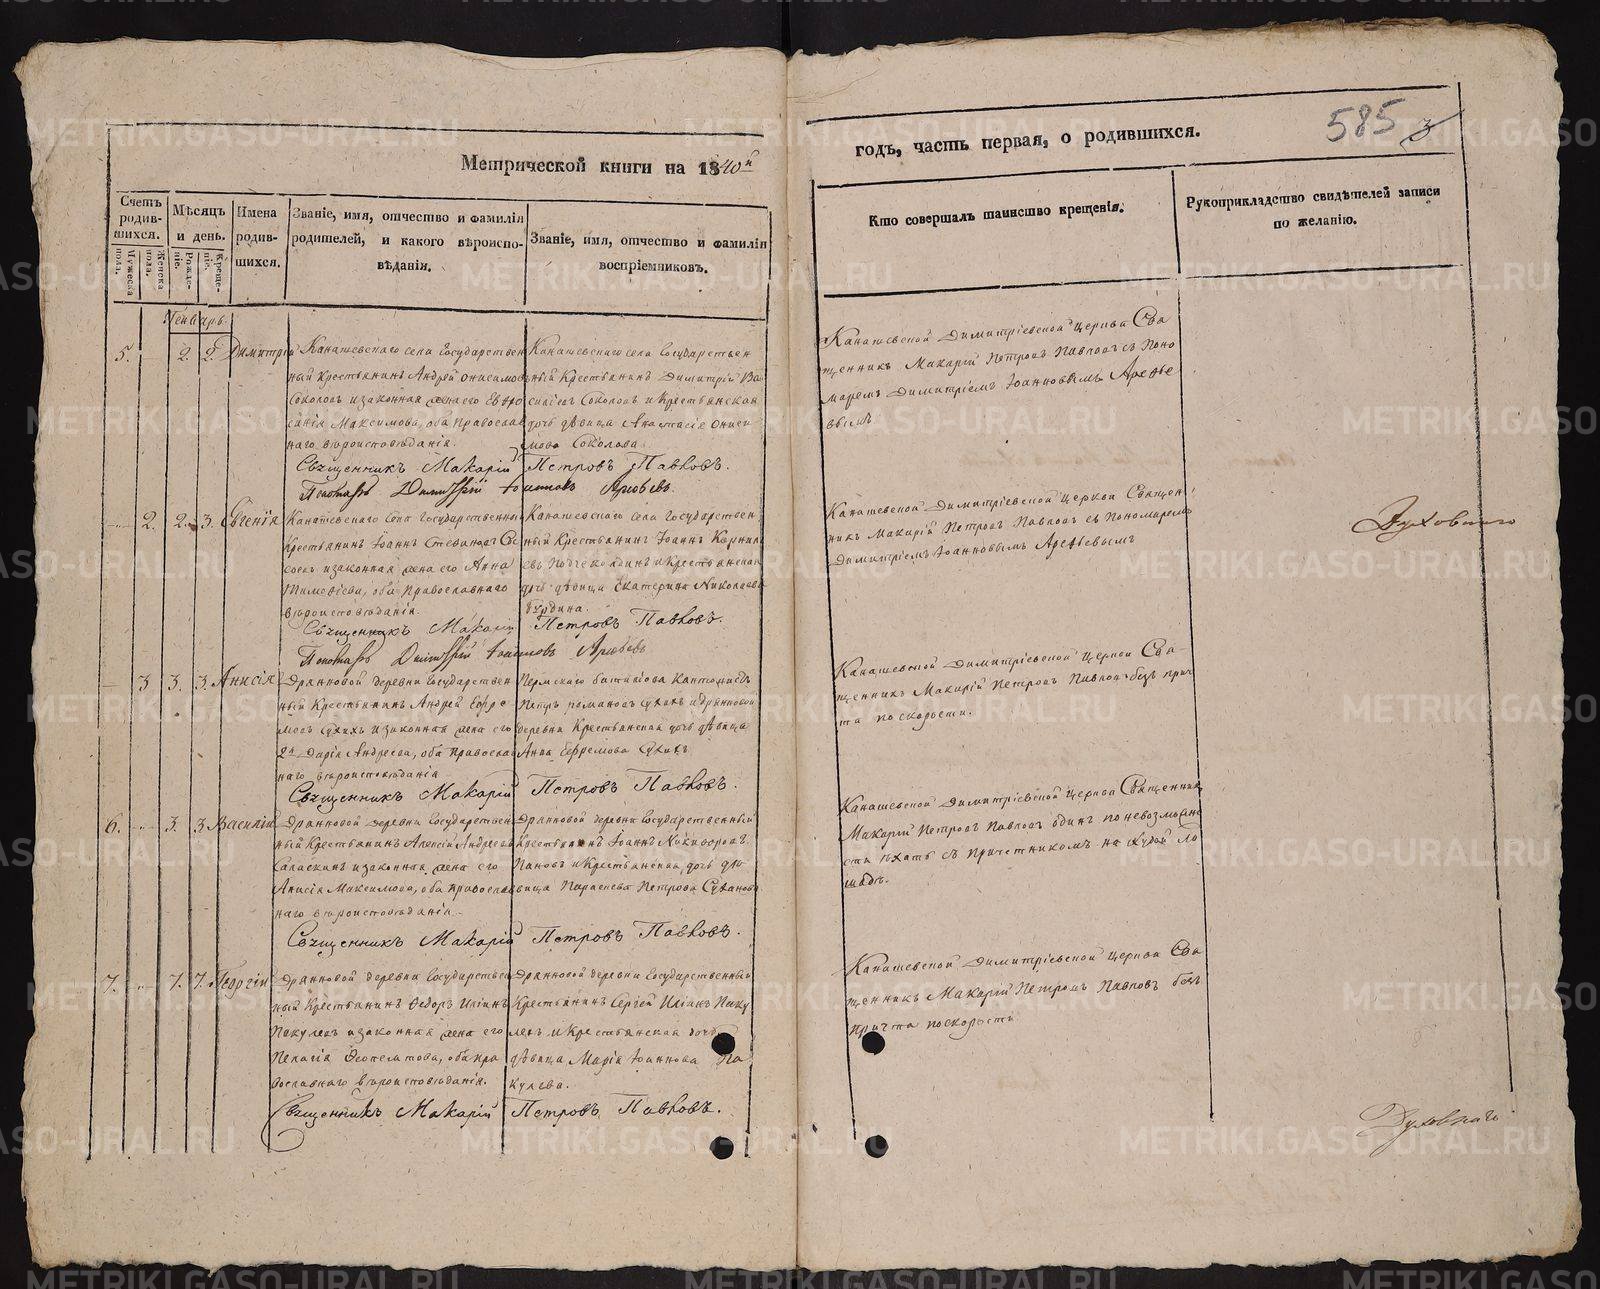 Метрической книги на 1840й
годъ, часть первая, о родившихся.
585
3
Счетъ родив-шихся.
Мужеска пола.
Женска пола.
Мѣсяцъ и день.
Рожде-ніе.
Креще-ніе.
Имена родив-шихся.
Званіе, имя, отчество и фамилія
родителей, и какого вѣроиспо-
вѣданія.
Званіе, имя, отчество и фамилія
воспріемниковъ.
Кто совершалъ таинство крещенія.
Рукоприкладство свидѣтелей записи
по желанію.
Генварь
5. 2. 2. Димитрій
Канашевскаго села Государствен
ный крестьянинъ Андрей Онисимовъ
Соколовъ и законная жена его Евфро
синія Максимова, оба православ
наго вѣроисповѣданія.
Канашевскаго села Государствен
ный Крестьянинъ Димитрій Ва
силіевъ Соколовъ и Крестьянская
дочь дѣвица Анастасіе Ониси
мова Соколова
Священникъ Макарій Петровъ Павловъ.
Пономарь Димитрій Іоанновъ Арефьевъ
Канашевской Димитріевской церкви Свя
щенникъ Макарій Петровъ Павловъ съ Поно
маремъ Димитріемъ Іоанновымъ Арефье
вымъ
2. 2. 3. Евгенія
Канашевскаго села Государственный
Крестьянинъ Іоаннъ
и законная жена его Анна
оба православнаго
вѣроисповѣданія
Канашевскаго села Государствен
ный Крестьянинъ Іоаннъ Корнил
евъ и Крестьянская
дочь дѣвица Екатерина Николаева
Священникъ Макарій Петровъ Павловъ.
Пономарь Димитрій Іоанновъ Арефьевъ
Канашевской Димитріевской церкви Священ
никъ Макарій Петровъ Павловъ съ Пономаремъ
Димитріемъ Іоанновымъ Арефьевымъ
Духовнаго
3 3. 3. Анисія
Дранновой деревни Государствен
ный Крестьянинъ Андрей Ефре
мовъ Сухихъ и законная жена его
2я Дарія Андреева, оба православ
наго вѣроисповѣданія
Пермскаго баталіона Кантонистъ
Петръ Романовъ Сухихъ и Дранновой
деревни Крестьянская дочь дѣвица
Анна Ефремова Сухихъ
Священникъ Макарій Петровъ Павловъ.
Канашевской Димитріевской церкви Свя-
щенникъ Макарій Петровъ Павловъ безъ прич
та по скорости.
6. 3. 3 Василій
Дранновой деревни Государствен
ный Крестьянинъ Алексій Андреевъ
и законная жена его
Анисія Максимова, оба православ
наго вѣроисповѣданія.
Дранновой деревни Государственный
Крестьянинъ Іоаннъ Никифоровъ
Пановъ и Крестьянская дочь дѣ
вица Параскева Петрова Суханова
Священникъ Макарій Петровъ Павловъ.
Канашевской Димитріевской церкви Священник
Макарій Петровъ Павловъ одинъ по невозможно
сти ѣхать съ причетникомъ на худой ло
шадѣ.
7. 7. 7. Георгій
Дранновой деревни Государствен
ный Крестьянинъ Ѳедоръ Иліинъ
Пакулевъ и законная жена его
Пелагія оба пра
вославнаго вѣроисповѣданія.
Дранновой деревни Государственный
Крестьянинъ Сергей Иліинъ Паку
левъ и Крестьянская дочь
дѣвица Марія Іоаннова Па
кулева.
Священникъ Макарій Петровъ Павловъ.
Канашевской Димитріевской церкви Свя
щенникъ Макарій Петровъ Павловъ безъ
причта по скорости
Духовнаго